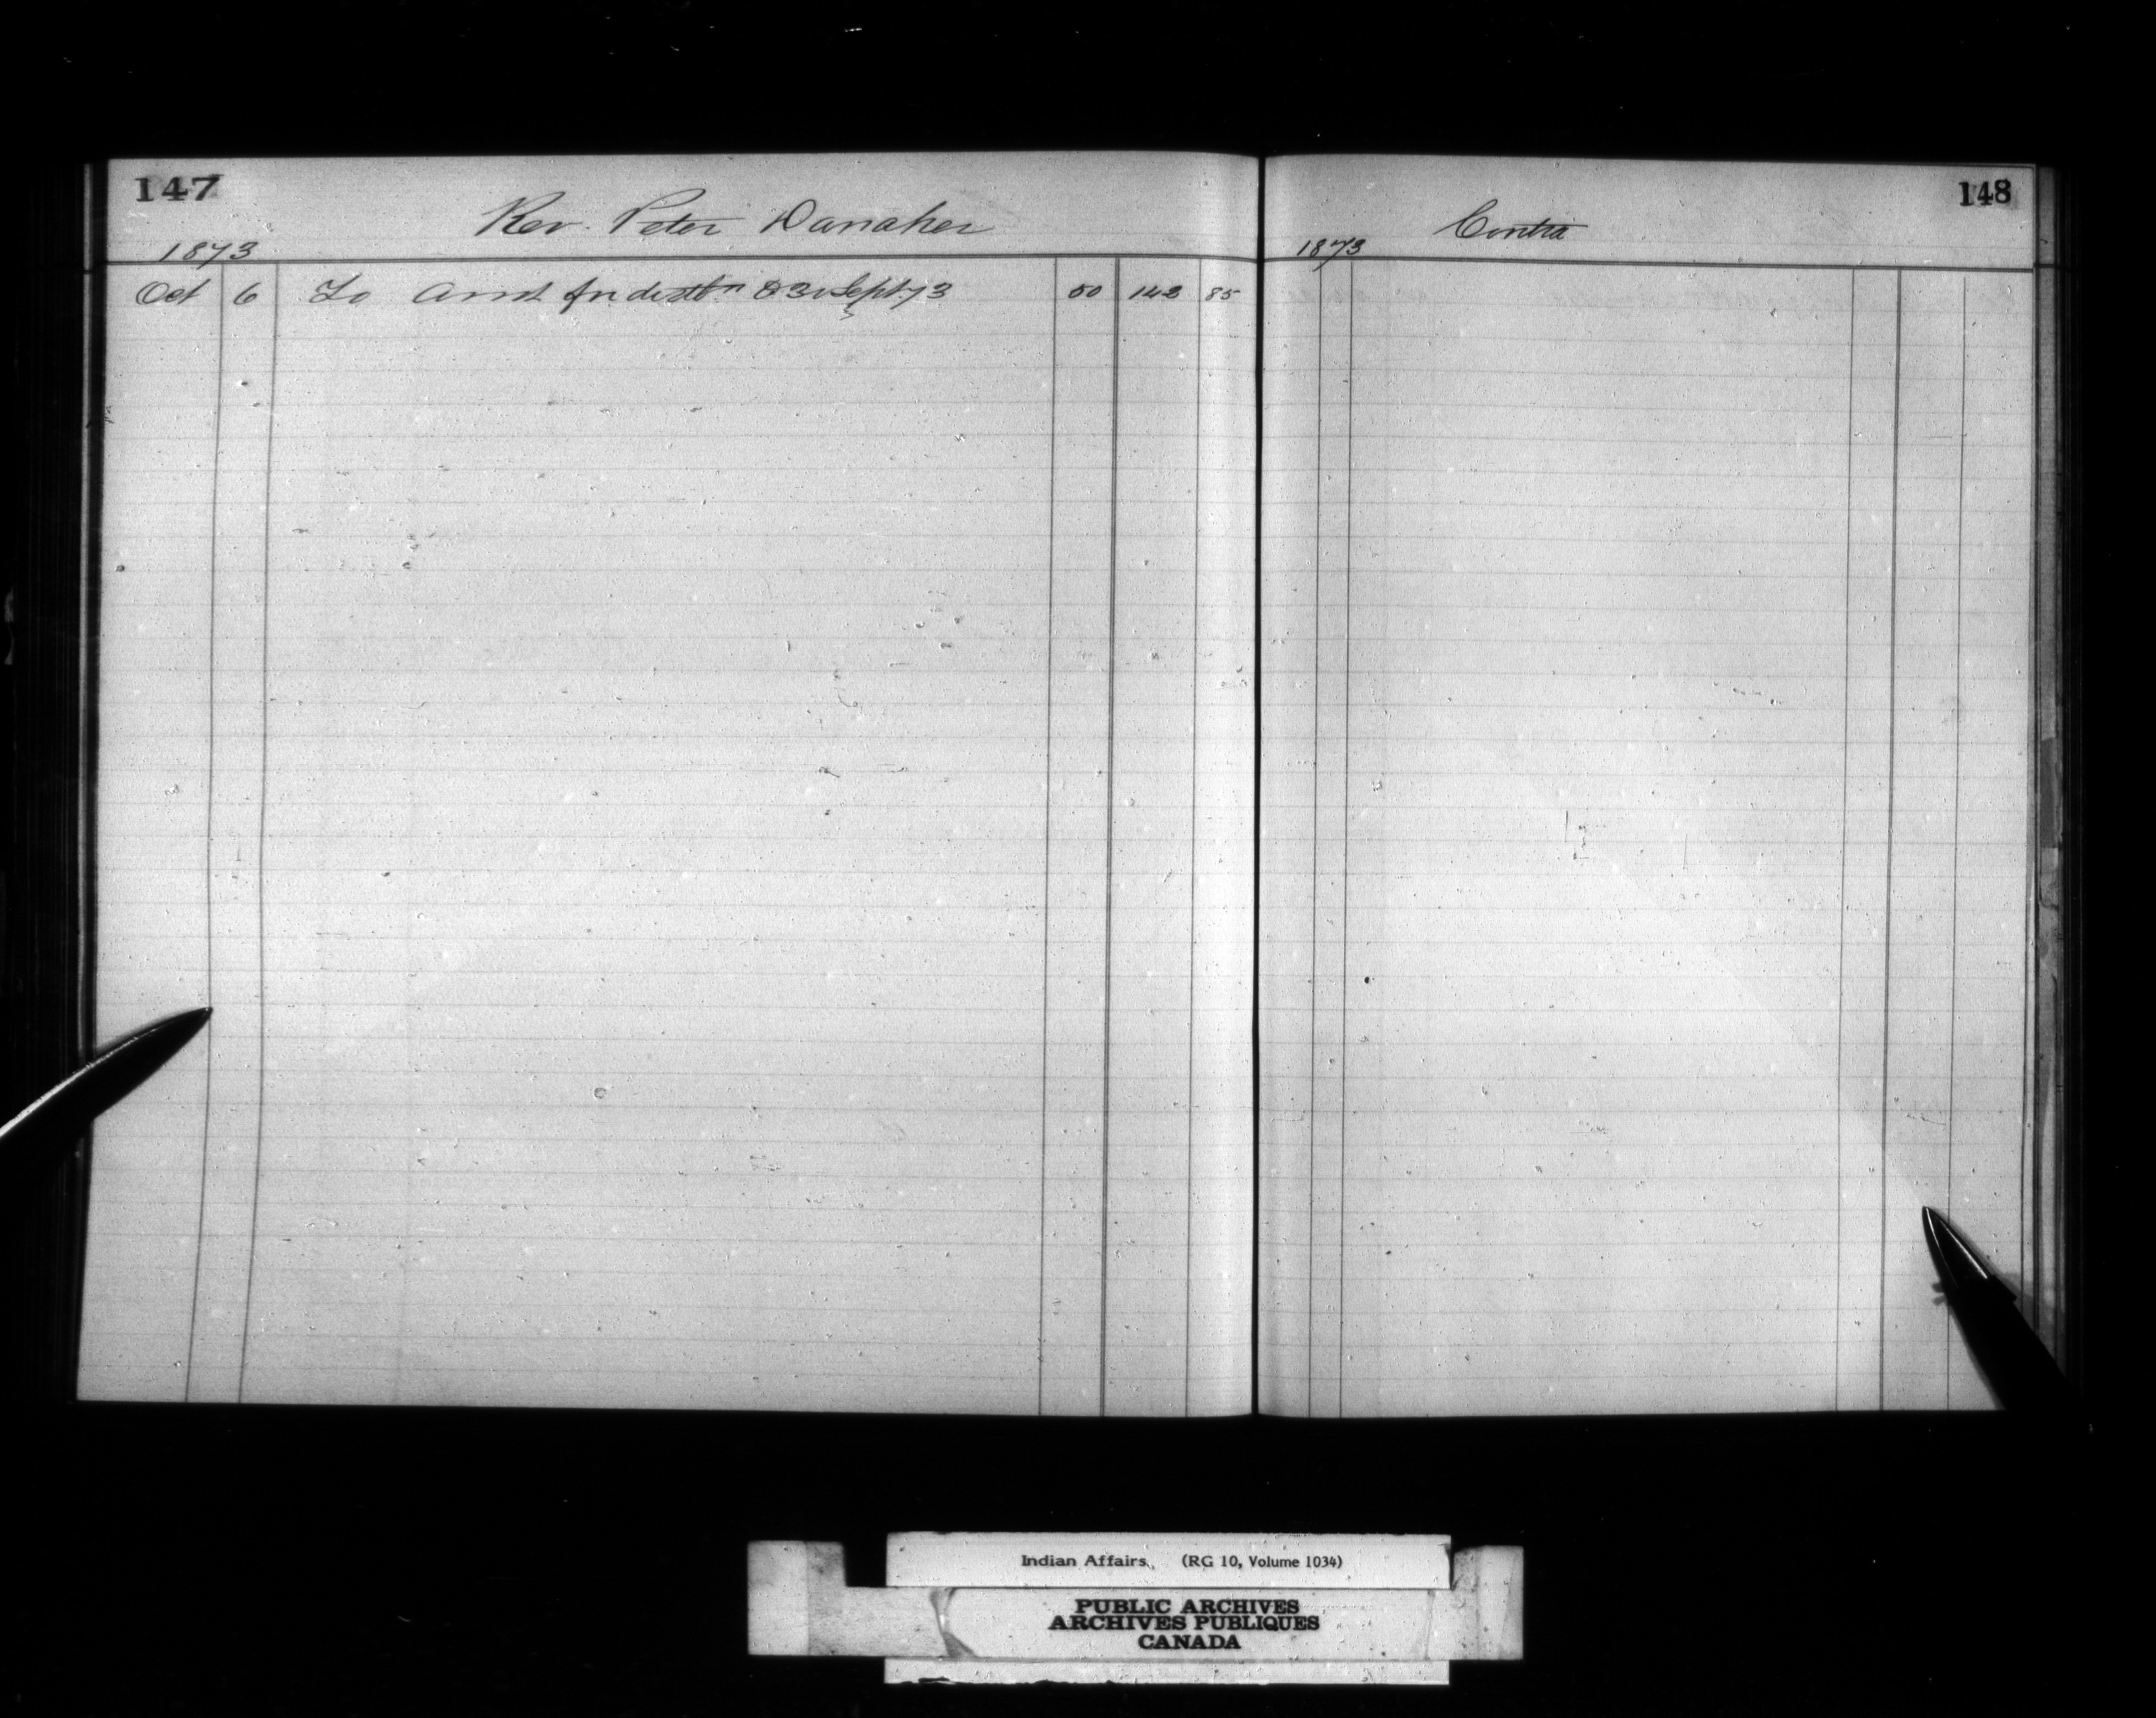 147
Rev. Peter Danaher
1873
Oct 6 To Amt for distbn 30 Sept. 73 50 142 85
148
Contra
1873
Indian Affairs. (RG 10, Volume 1034)
PUBLIC ARCHIVES
ARCHIVES PUBLIQUES
CANADA